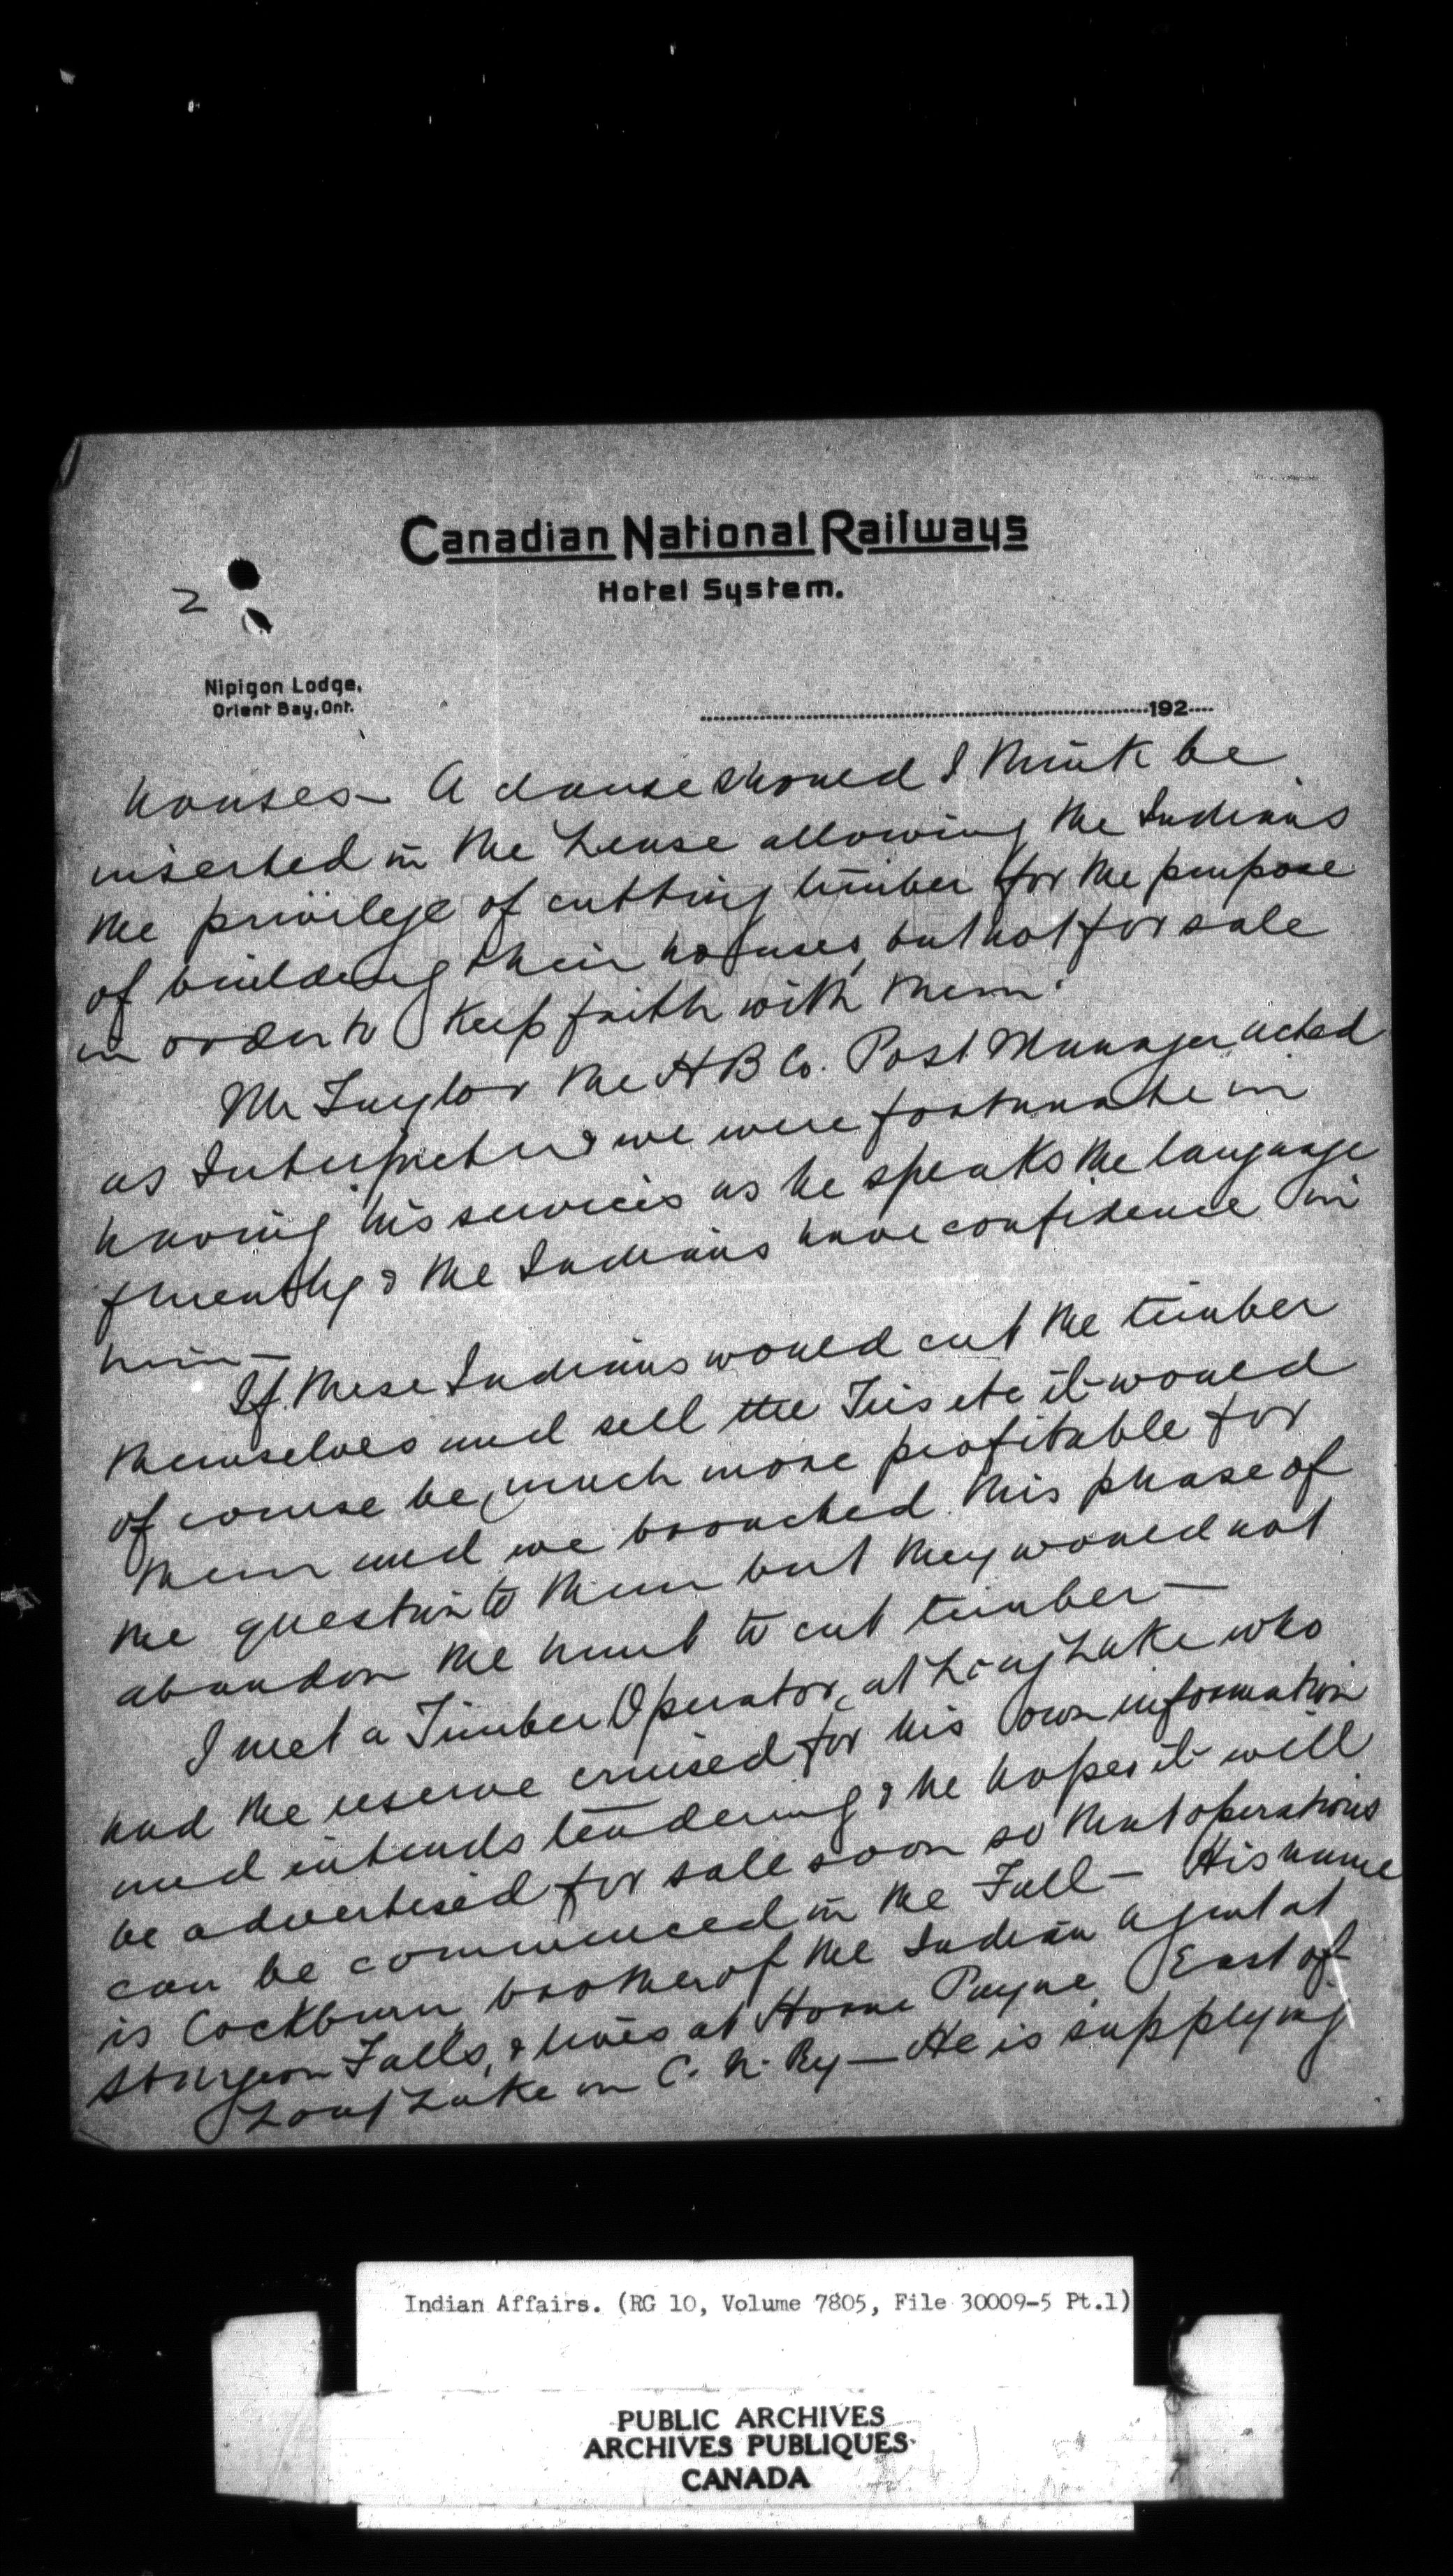 Canadian National Railways
Hotel System.
2
Nipigon Lodge,
Orient Bay, Ont.
192
houses - A clause should I think be
inserted in the Lease allowing the Indians
the privilege of cutting timber for the purpose
of building their houses, but not for sale
in order to keep faith with them.
Mr Taylor the H B Co. Post Manager acted
as Interpreter & we were fortunate in
having his services as he speaks the language
fluently & the Indians have confidence in
him -
If these Indians would cut the timber
themselves and sell the Ties etc it would
of course be, much more profitable for
them and we broached this phase of
the question to them but they would not
abandon the hunt to cut timber -
I met a Timber Operator, at Long Lake who
had the reserve cruised for his own information
and intends tendering & he hopes it will
be advertised for sale soon so that operations
can be commenced in the Fall - His name
is Cockburn, brother of the Indian agent at
Sturgeon Falls, & lives at Horne Payne East of
Long Lake on C. N. Ry - He is supplying
Indian Affairs. (RG 10, Volume 7805, File 30009-5 Pt.1)
PUBLIC ARCHIVES
ARCHIVES PUBLIQUES
CANADA